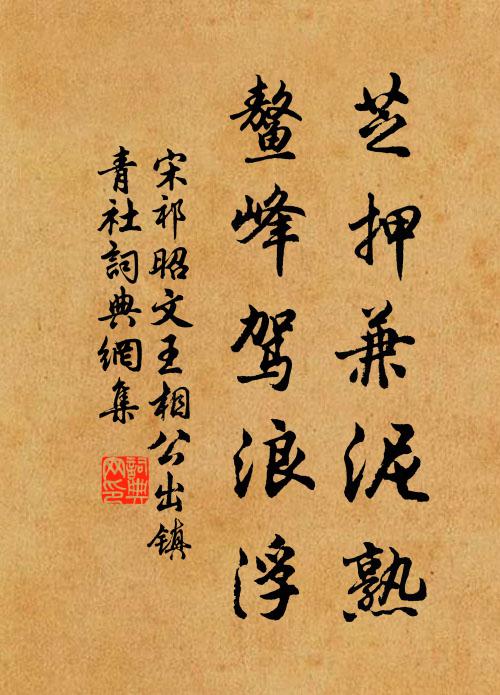 芝押兼泥熟
鰲峰駕浪浮
宋祁昭文王相公出鎮
青社詞典網集
詞典网印